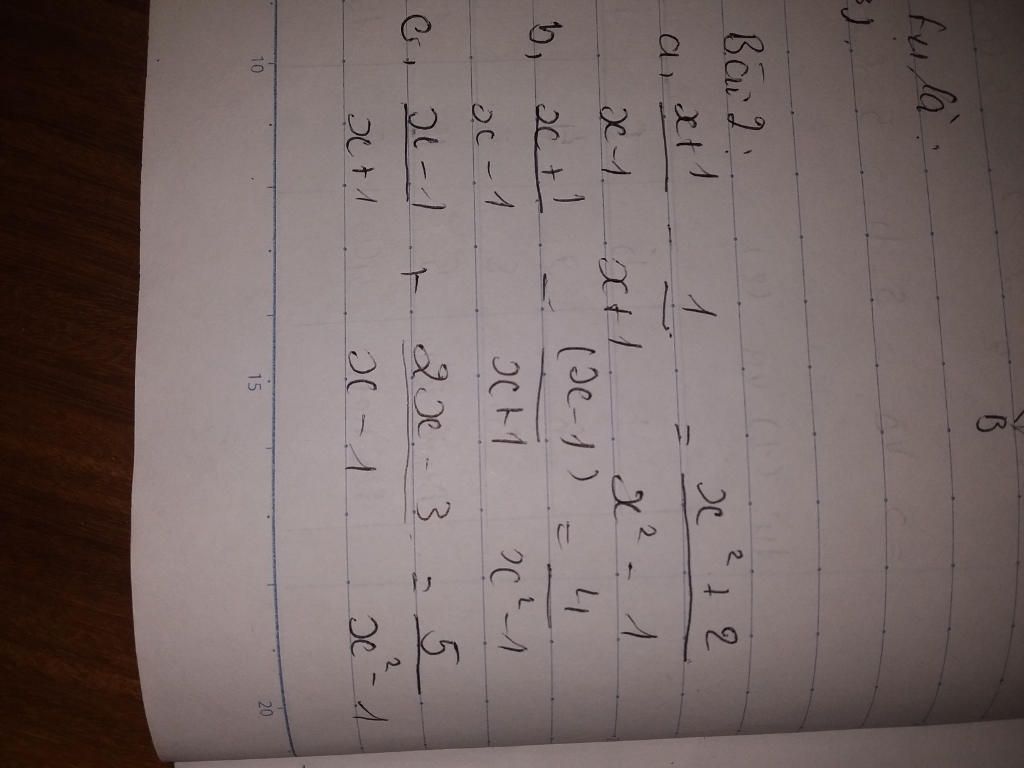 B
Bài 2
a, x+1/x-1 - 1/x+1 = x²+2/x²-1
b, x+1/x-1 - (x-1)/x+1 = 4/x²-1
c, x-1/x+1 + 2x-3/x-1 = 5/x²-1
10 15 20